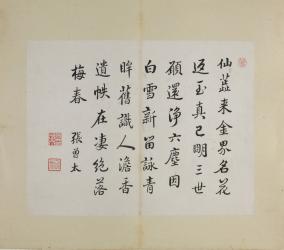 仙藍來金界名花
返玉真已明三世
願還淨六塵因
白雪新留詠青
眸舊識人澹香
遺帙在凄絕落
梅春 張曾太